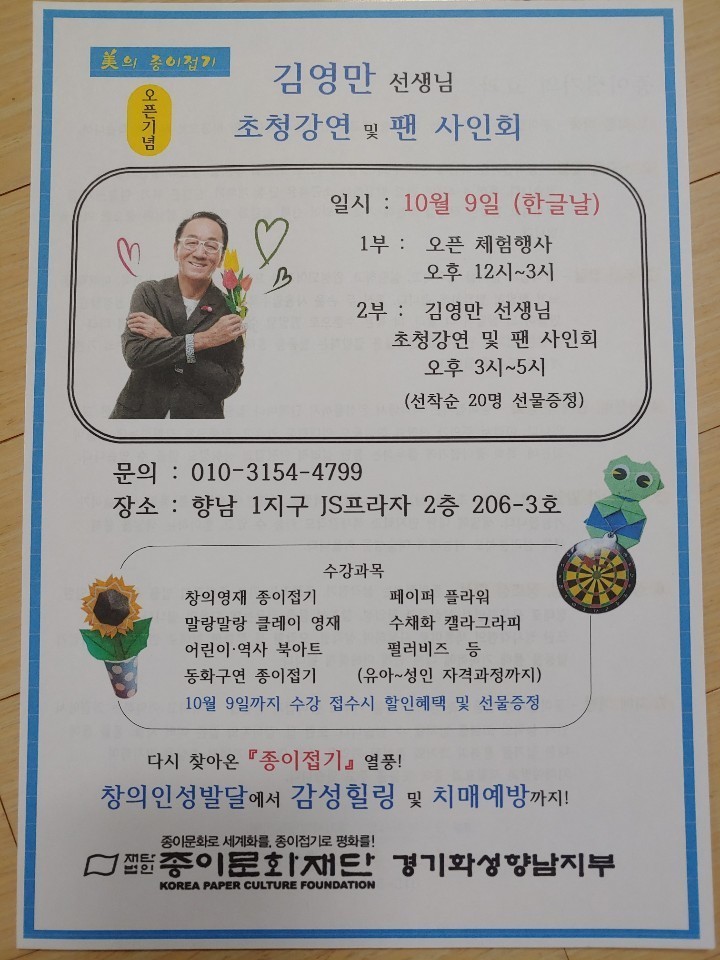 美의 종이접기
오픈기념
김영만 선생님
초청강연 및 팬 사인회
일시 : 10월 9일 (한글날)
1부 : 오픈 체험행사
오후 12시~3시
2부 : 김영만 선생님
초청강연 및 팬 사인회
오후 3시~5시
(선착순 20명 선물증정)
문의 : 010-3154-4799
장소 : 향남 1지구 JS프라자 2층 206-3호
수강과목
창의영재 종이접기 페이퍼 플라워
말랑말랑 클레이 영재 수채화 캘라그라피
어린이·역사 북아트 펄러비즈 등
동화구연 종이접기 (유아~성인 자격과정까지)
10월 9일까지 수강 접수시 할인혜택 및 선물증정
다시 찾아온 『종이접기』 열풍!
창의인성발달에서 감성힐링 및 치매예방까지!
종이문화로 세계화를, 종이접기로 평화를!
재단법인 종이문화재단 경기화성향남지부
KOREA PAPER CULTURE FOUNDATION